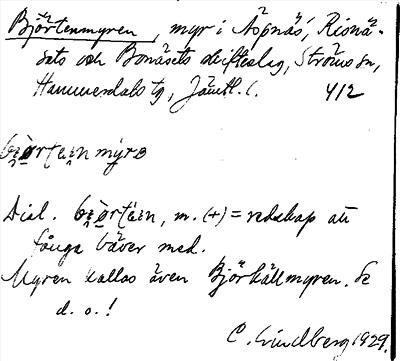 Björtenmyren, myr i Aspnäs, Risnä-
sets och Bonäsets skifteslag, Ströms sn,
Hammerdals tg, Jämtl. l. 412
Dial. , m. (+) = redskap att
fånga bäver med.
Myren kallas även Björkällmyren. Se
d. o.!
C. Lindberg 1929.